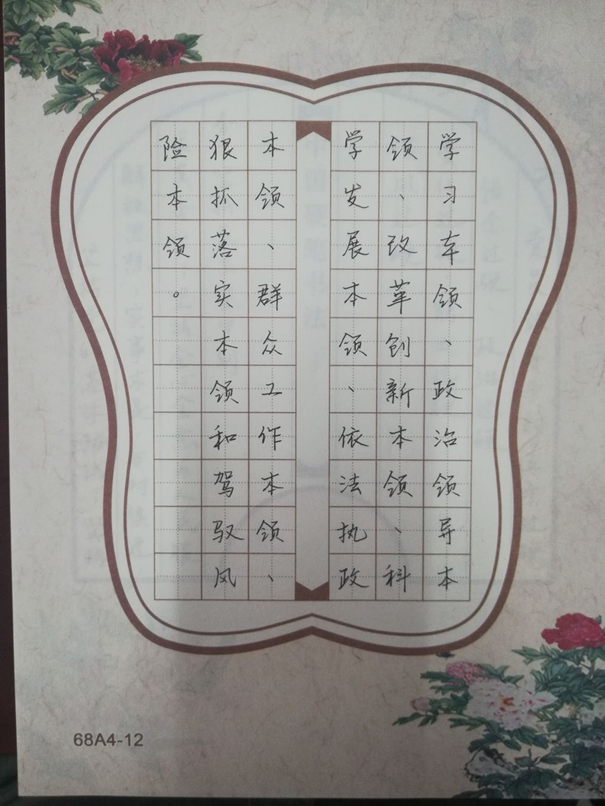 学习本领、政治领导本
领、改革创新本领、科
学发展本领、依法执政
本领、群众工作本领、
狠抓落实本领和驾驭风
险本领。
68A4-12